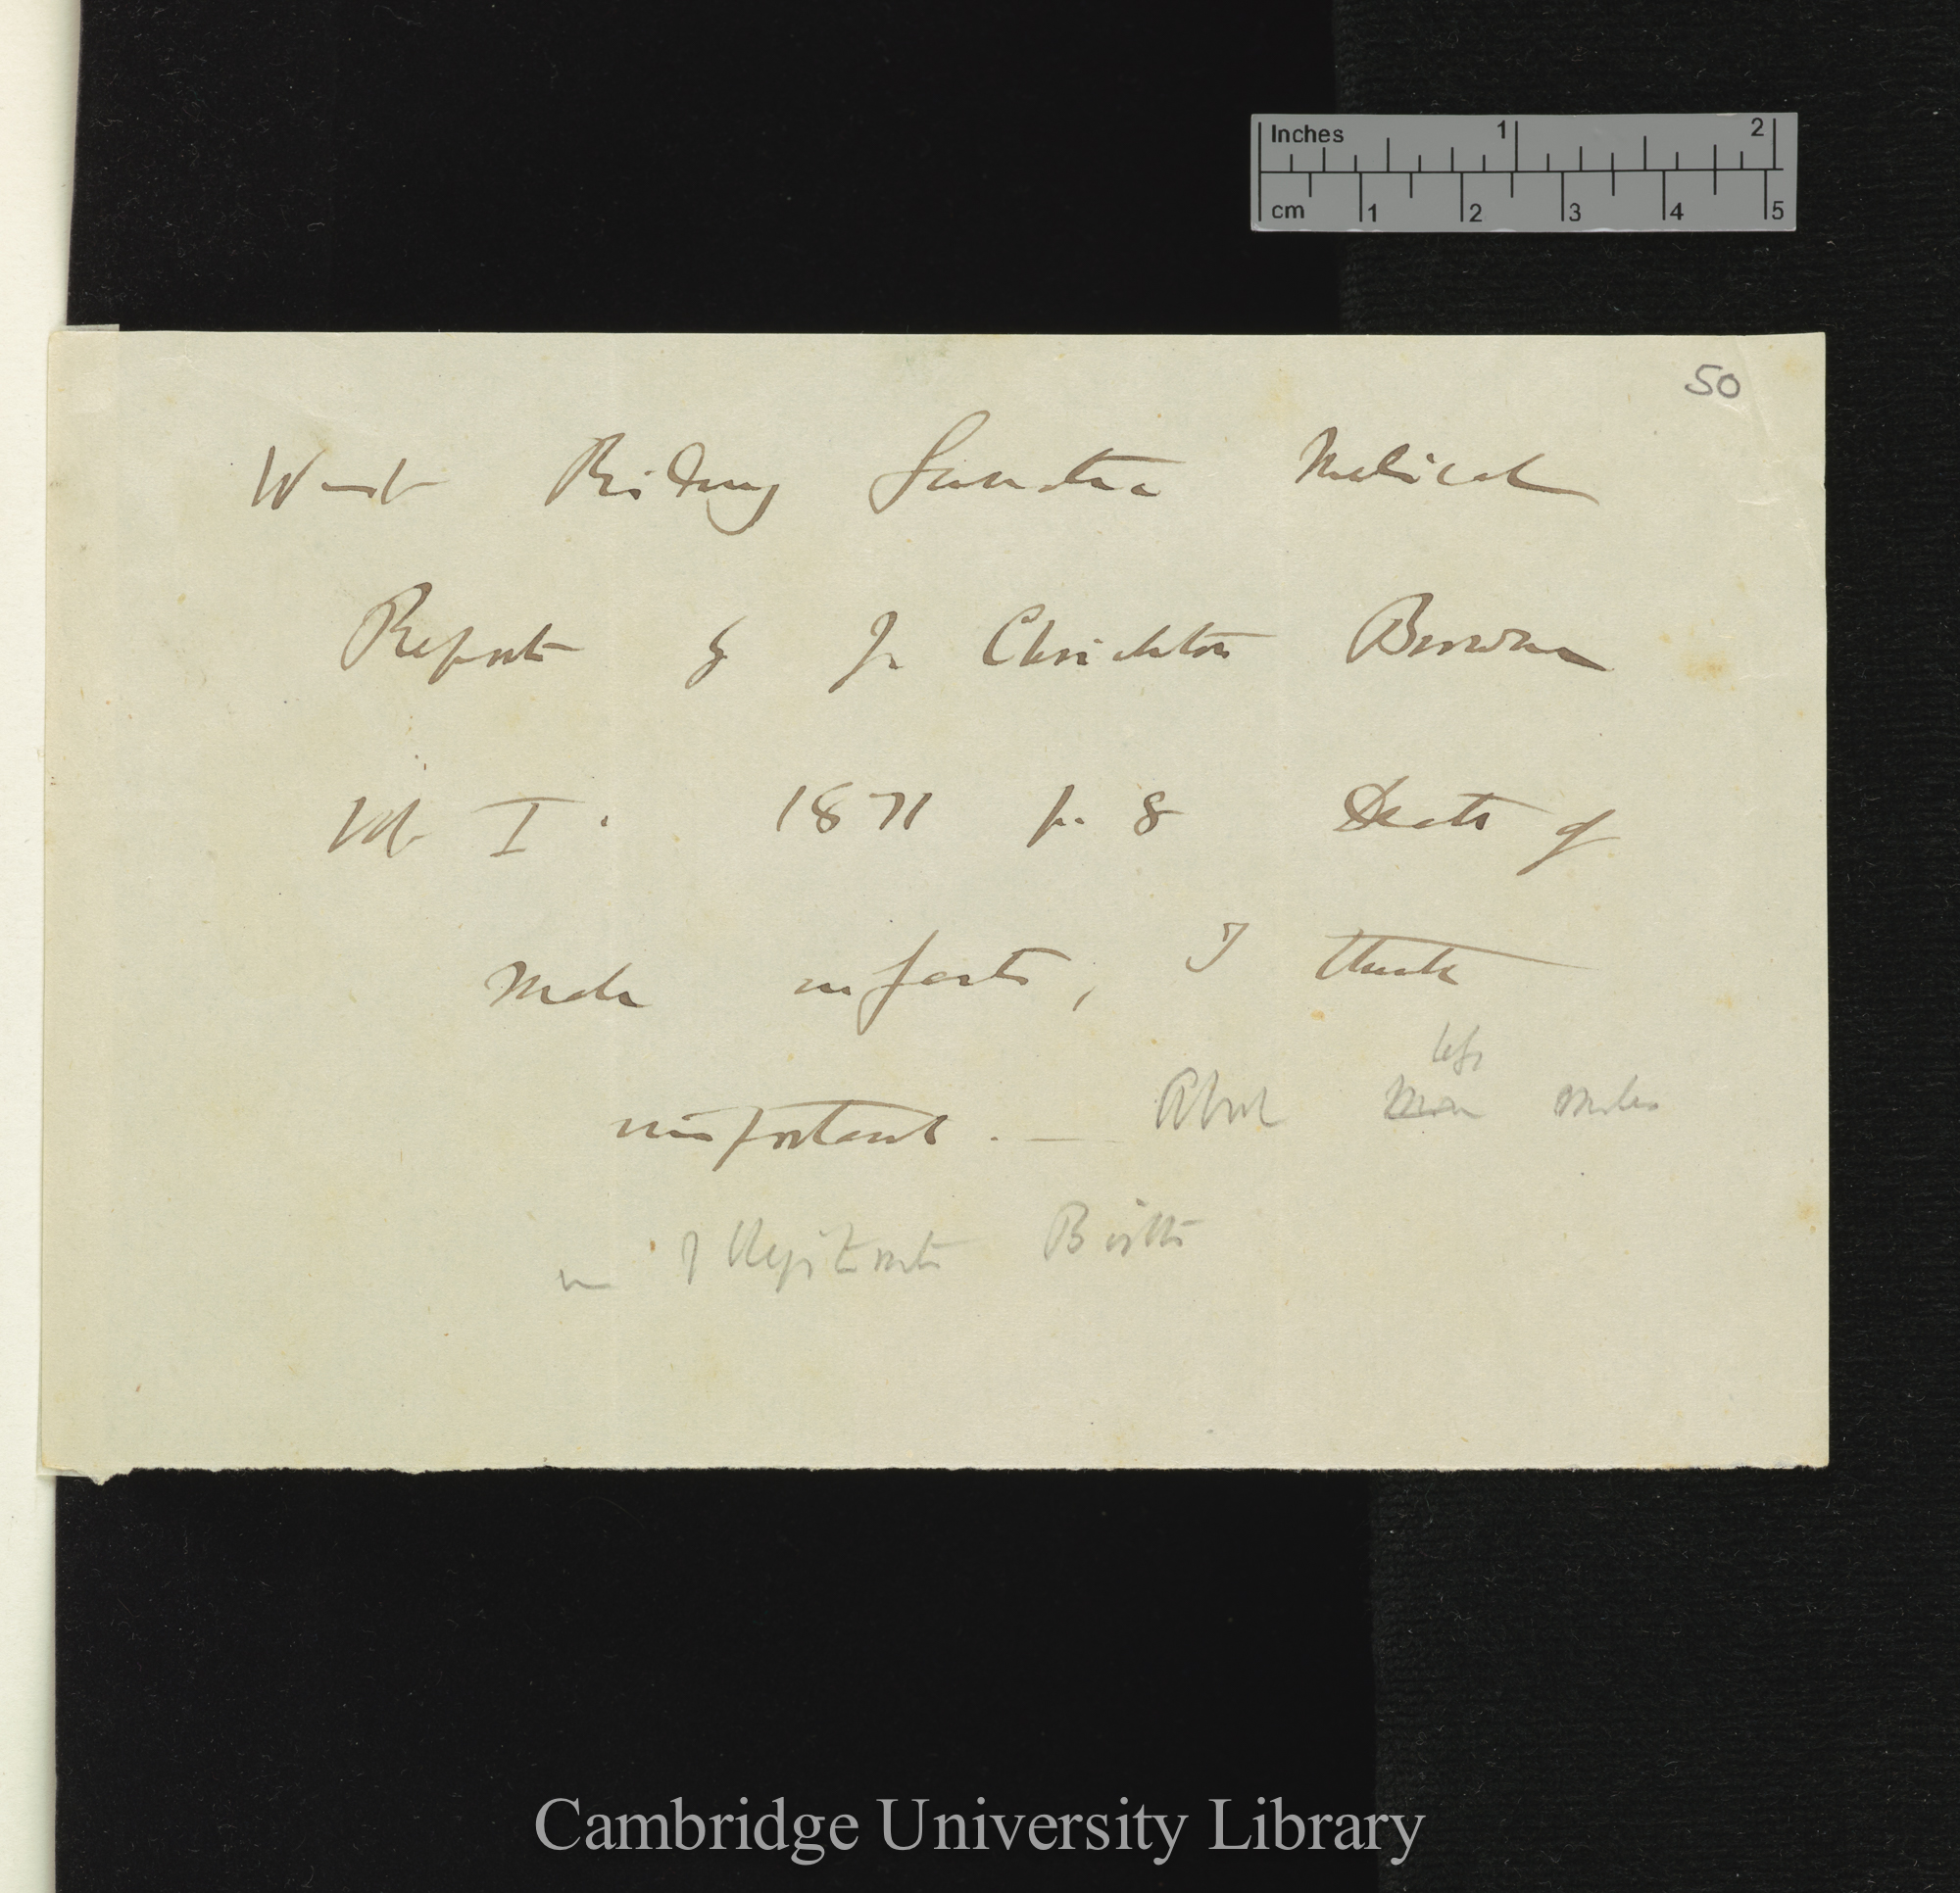 Inches 1 2
cm 1 2 3 4 5
50
West Riding Lunatic Medical
Reports by J. Chrichton Browne
Vol. I. 1871 p. 8 Death of
Male infants, I think
important. — About
less
More Males
in Illegitimate Births
Cambridge University Library